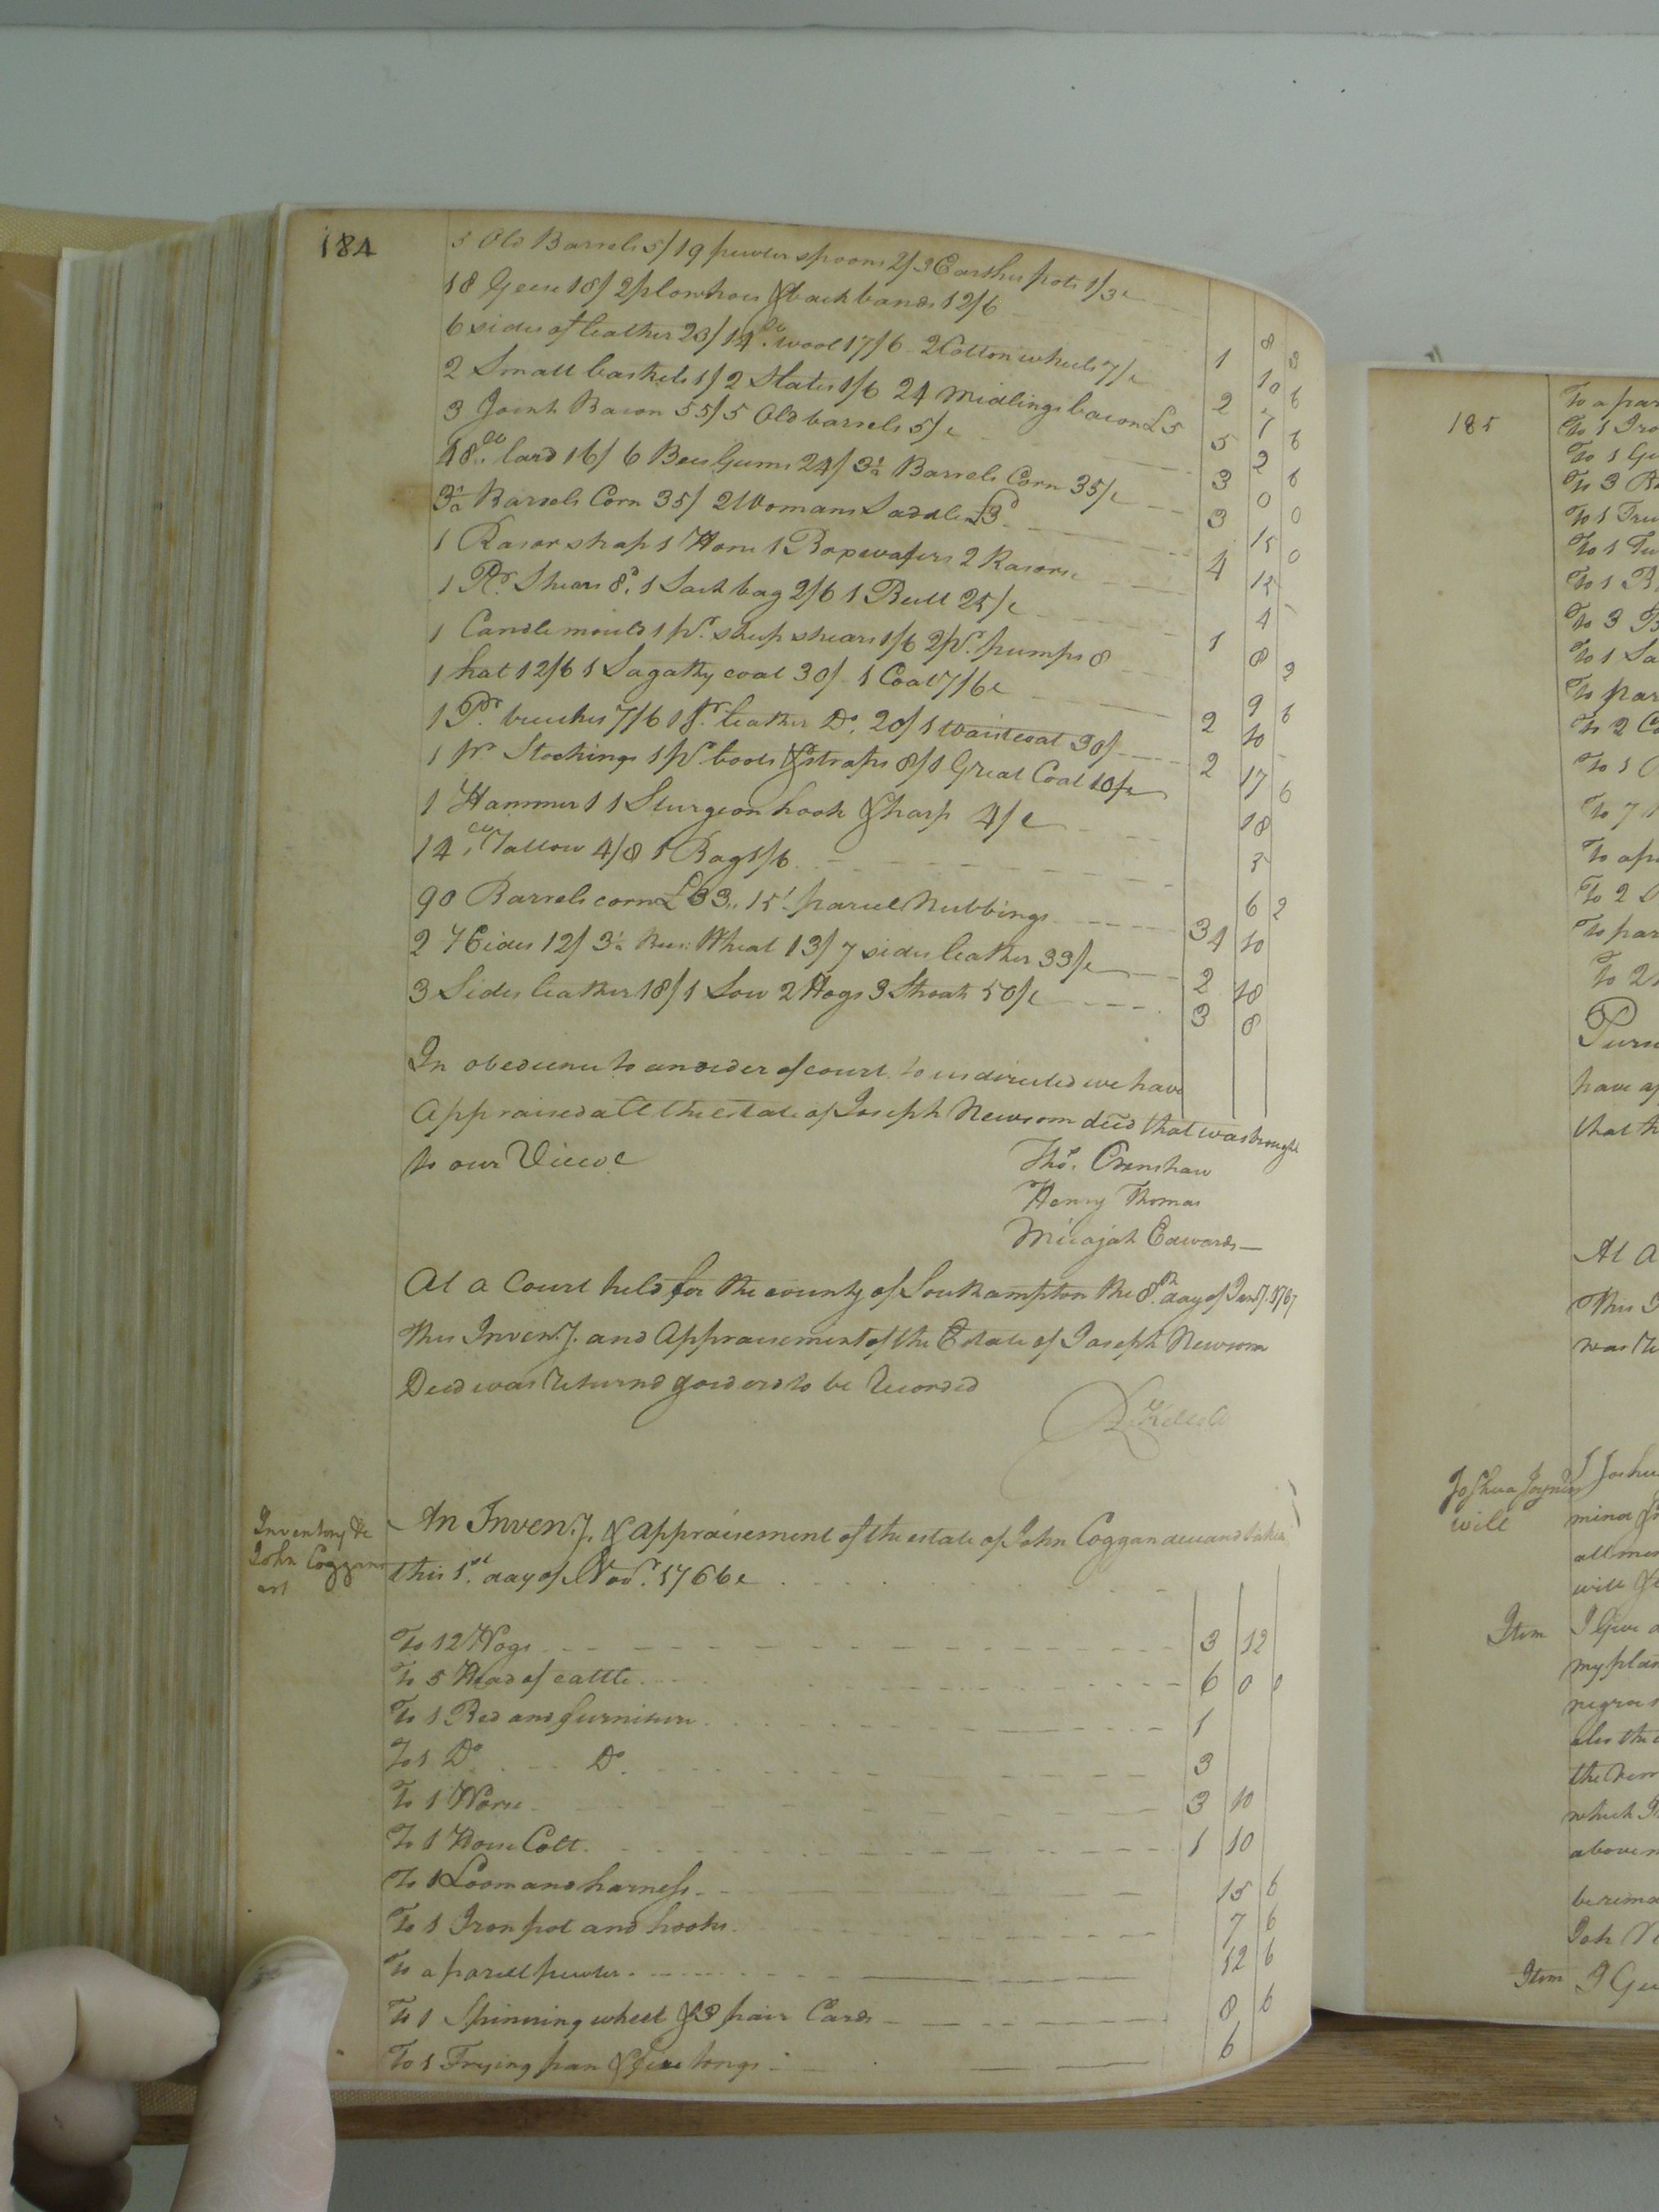 184
5 Old Barrels 5/ 19 pewter spoons 2/ 3 Earthen pots 1/3 8 3
18 Geese 18/ 2 plowhoes & back bands 12/6 1 10 6
6 sides of leather 23/ 14lb. wool 17/6 2 Cotton wheels 7/ 2 7 6
2 Small baskets 1/ 2 Slates 1/6 24 Midlings bacon £5 5 2 6
3 Joints Bacon 55/ 5 Old barrels 5/ 3 0 0
48lb. lard 16/ 6 Bee Gums 24/ 3½ Barrels Corn 35/ 3 15 0
3½ Barrels Corn 35/ 2 Womans Saddles £3 4 15 -
1 Rasor strap 1 Hone 1 Box wafers 2 Rasors 4
1 Pr. Shears 8d. 1 Sack bag 2/6 1 Bull 25/ 1 8 2
1 Candle mould 1 pr. sheep shears 1/6 2 pr. pumps 8 9 6
1 hat 12/6 1 Sagathy coat 30/ 1 Coat 7/6 2 10 -
1 Pr. breeches 7/6 1 pr. leather Do. 20/ 1 waistcoat 30/ 2 17 6
1 pr. Stockings 1 pr. boots & straps 8/ 1 Great Coat 10/ 18
1 Hammer 1 1 Sturgeon hook & harp 4/ 5
14lb. Tallow 4/8 1 Bag 1/6 6 2
90 Barrels corn £33.. 15s. parcel Nubbings 34 10
2 Hides 12/ 3½ Bus: Wheat 13/ 7 sides leather 33/ 2 18
3 Sides leather 18/ 1 Sow 2 Hogs 3 Shoats 50/ 3 8
In obedience to an order of court to us directed we have
Appraised all the estate of Joseph Newsom decd that was brought
to our View
Thos. Crenshaw
Henry Thomas
Micajah Edwards
At a Court held for the county of Southampton the 8th. day of Jany. 1767
This Inven.y. and Appraisement of the Estate of Joseph Newsom
Decd was returnd & ord to be recorded
Inventory &c
John Coggans
est
An Inven.y. & appraisement of the estate of John Coggan decd and taken
this 1st. day of Novr. 1766
To 12 Hogs 3 12
To 5 Head of cattle 6 0 0
To 1 Bed and furniture 1
To 1 Do Do. 3
To 1 Horse 3 10
To 1 Horse Colt 1 10
To 1 Loom and harness 15 6
To 1 Iron pot and hooks 7 6
To a parcell pewter 12 6
To 1 Spinning wheel & 3 pair Cards 8 6
To 1 Frying pan & fire tongs 6
185
To a par
To 1 Iro
To 1 Gu
To 3
To 1
To 1
To 1 B
To 3 B
To 1 Sa
To par
To 2 Co
To 1
To 7
To a p
To 2
To par
To 2
Pursu
have ap
that
At a
This I
was re
Joshua Joyner
will
I Joshu
mind
all men
will
Item
I Give
my plan
negroe
also the
the
which
above
be
Item
I Giv